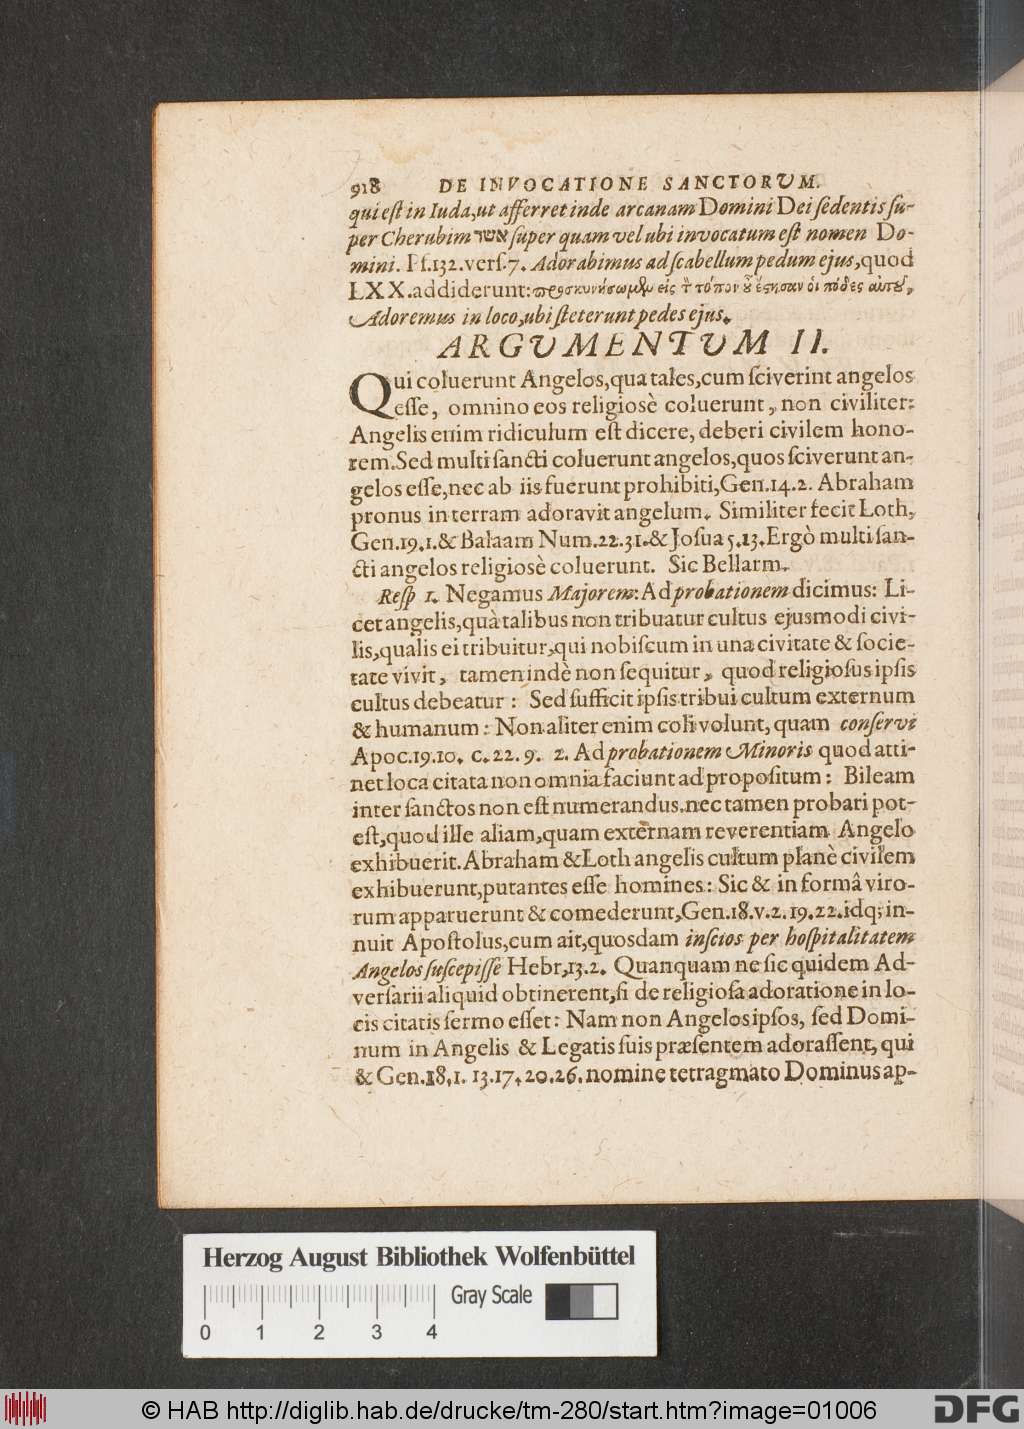 918 DE INVOCATIONE SANCTORVM.
qui est in Iuda,ut afferret inde arcanam Domini Dei sedentis su-
per Cherubim אשר super quam vel ubi invocatum est nomen Do-
mini. Ps.132.vers.7. Adorabimus ad scabellum pedum ejus,quod
LXX.addiderunt: προσκυνήσωμϑυ εἰς τ τόπον οὗ ἔςησαν οἱ πόδες αὐτοῦ.
Adoremus in loco,ubi steterunt pedes ejus.
ARGVMENTVM II.
Qui coluerunt Angelos,qua tales,cum sciverint angelos
esse, omnino eos religiosè coluerunt, non civiliter:
Angelis enim ridiculum est dicere, deberi civilem hono-
rem.Sed multi sancti coluerunt angelos,quos sciverunt an-
gelos esse,nec ab iis fuerunt prohibiti,Gen.14.2. Abraham
pronus in terram adoravit angelum. Similiter fecit Loth,
Gen.19.1.& Balaam Num.22.31.& Josua 5.13.Ergò multi san-
cti angelos religiosè coluerunt. Sic Bellarm.
Resp 1. Negamus Majorem: Ad probationem dicimus: Li-
cet angelis,quà talibus non tribuatur cultus ejusmodi civi-
lis,qualis ei tribuitur,qui nobiscum in una civitate & socie-
tate vivit, tamen indè non sequitur, quod religiosus ipsis
cultus debeatur: Sed sufficit ipsis tribui cultum externum
& humanum: Non aliter enim coli volunt, quam conservi
Apoc.19.10. c.22.9. 2. Ad probationem Minoris quod atti-
net loca citata non omnia faciunt ad propositum: Bileam
inter sanctos non est numerandus.nec tamen probari pot-
est,quod ille aliam,quam externam reverentiam Angelo
exhibuerit.Abraham & Loth angelis cultum planè civilem
exhibuerunt,putantes esse homines: Sic & in formâ viro-
rum apparuerunt & comederunt,Gen.18.v.2.19.22.idq; in-
nuit Apostolus,cum ait,quosdam inscios per hospitalitatem
Angelos suscepisse Hebr,13.2. Quanquam ne sic quidem Ad-
versarii aliquid obtinerent,si de religiosa adoratione in lo-
cis citatis sermo esset: Nam non Angelos ipsos, sed Domi-
num in Angelis & Legatis suis præsentem adorassent, qui
& Gen.18.1. 13.17.20.26. nomine tetragmato Dominus ap-
Herzog August Bibliothek Wolfenbüttel
Gray Scale
0 1 2 3 4
© HAB http://diglib.hab.de/drucke/tm-280/start.htm?image=01006
DFG